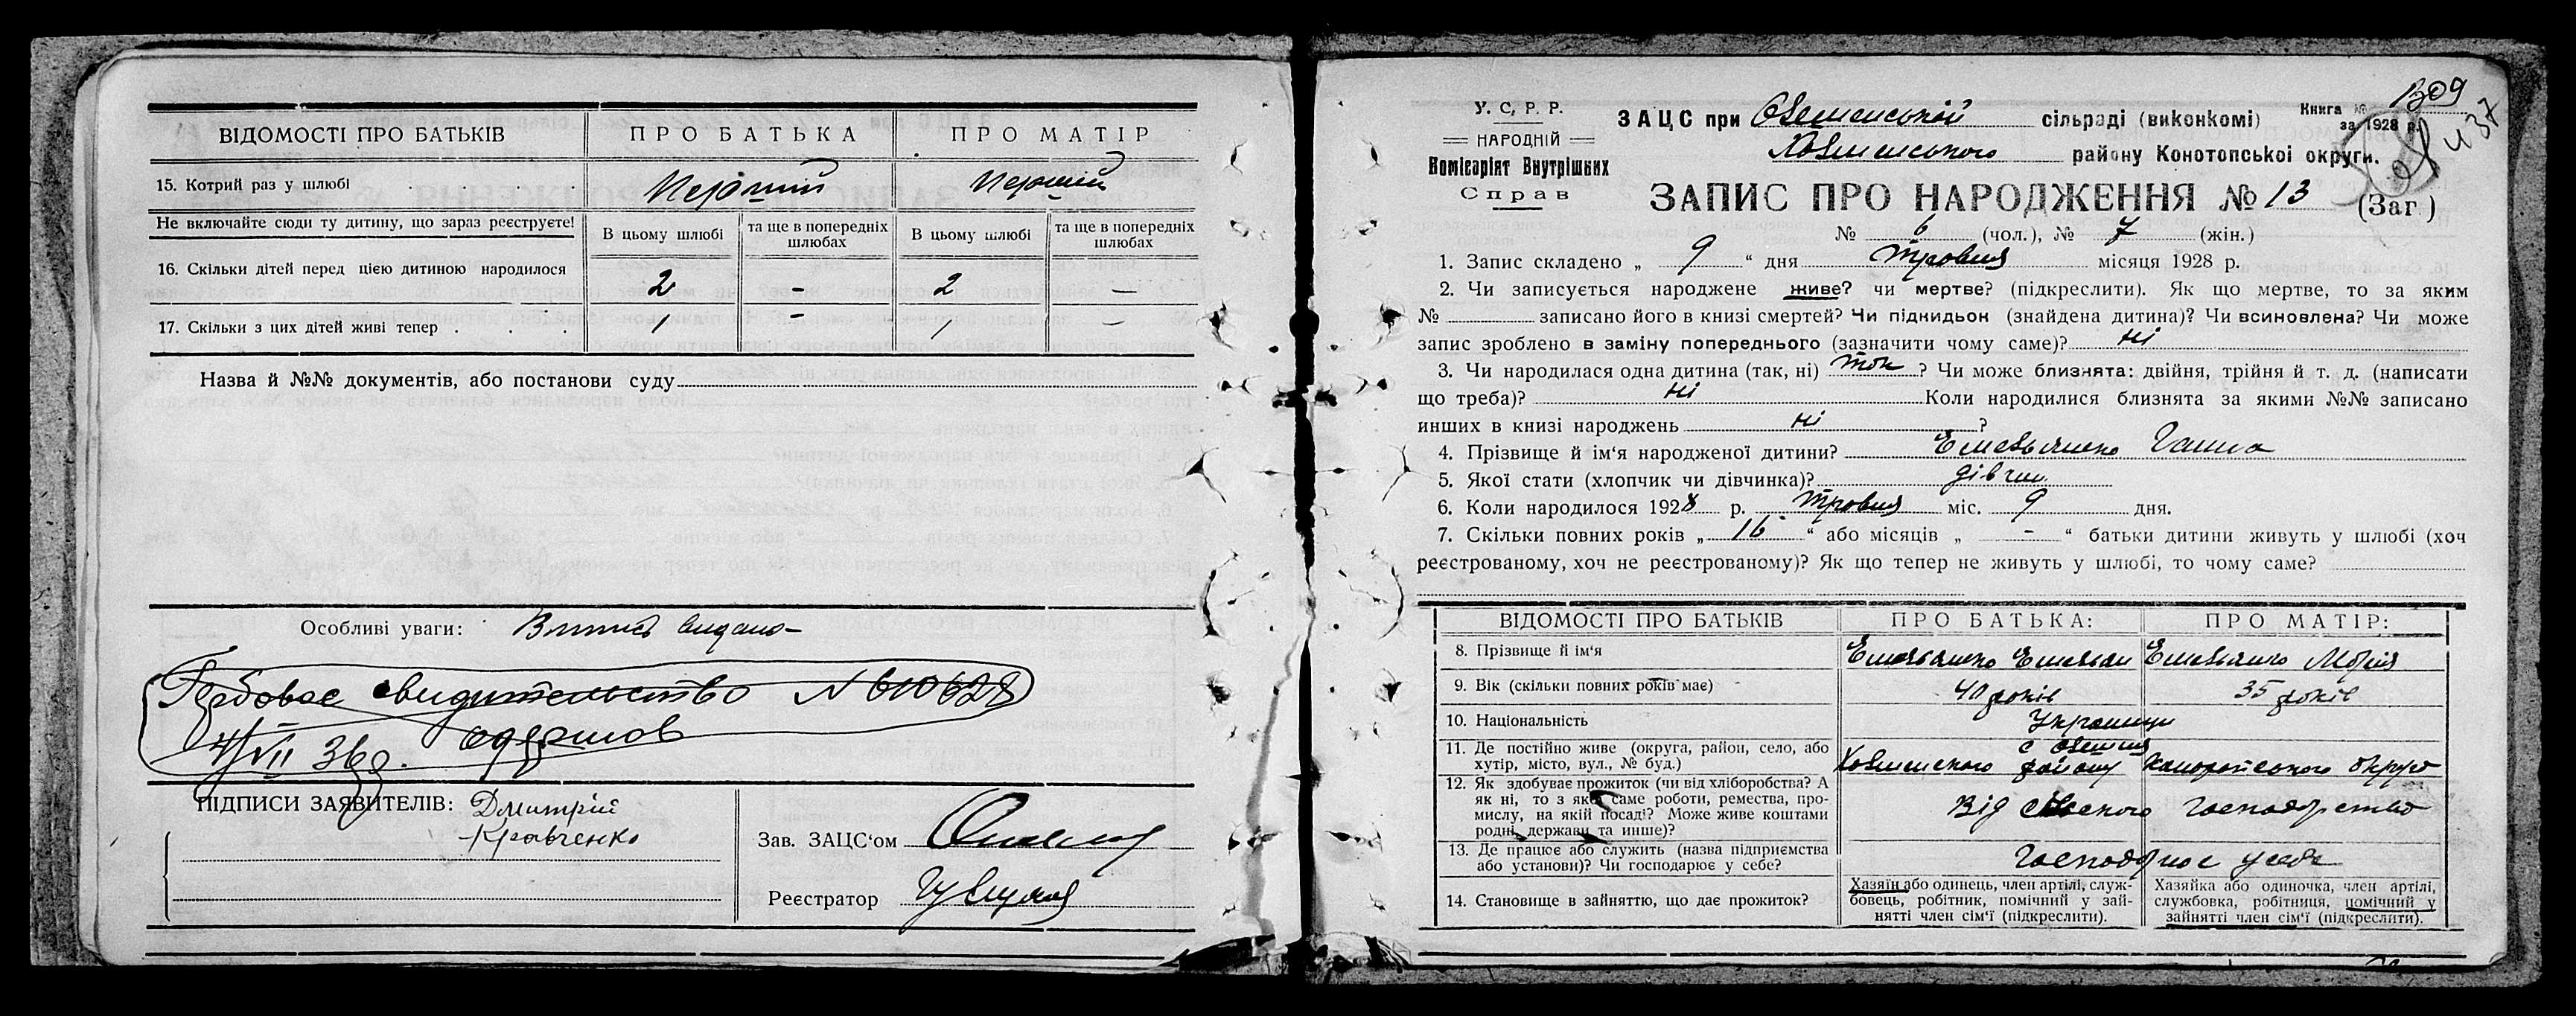 ВІДОМОСТІ ПРО БАТЬКІВ
ПРО БАТЬКА
ПРО МАТІР
15. Котрий раз у шлюбі . .
Перший
Перший
Не включайте сюди ту дитину, що зараз реєструєте!
В цьому шлюбі
та ще в попередніх шлюбах
В цьому шлюбі
та ще в попередніх шлюбах
16. Скільки дітей перед цією дитиною народилося
2 - 2 -
17. Скільки з цих дітей живі тепер . . .
1 - 1 -
Назва й №№ документів, або постанови суду
Особливі уваги: Випись видано
Гербовое свидительство N 610628
4/VII 36 г.
ПІДПИСИ ЗАЯВИТЕЛІВ: Дмитрій
Кравченко
Зав. ЗАЦС'ом
Реєстратор
У. С. Р. Р.
НАРОДНІЙ
Комісаріят Внутрішніх
Справ
ЗАЦС при сільраді (виконкомі)
Книга №
за 1928 р.
1309
437
району Конотопської округи.
ЗАПИС ПРО НАРОДЖЕННЯ № 13 (Заг.)
№ 6 (чол.), № 7 (жін.)
1. Запис складено „ 9 “ дня травня місяця 1928 р.
2. Чи записується народжене живе? чи мертве? (підкреслити). Як що мертве, то за яким
№ записано його в книзі смертей? Чи підкидьок (знайдена дитина)? Чи всиновлена? Чи може
запис зроблено в заміну попереднього (зазначити чому саме)? ні
3. Чи народилася одна дитина (так, ні) так ? Чи може близнята: двійня, трійня й т. д. (написати
що треба)? ні Коли народилися близнята за якими №№ записано
инших в книзі народжень ні ?
4. Прізвище й ім'я народженої дитини? Емельяненко Ганна
5. Якої стати (хлопчик чи дівчинка)? дівчин.
6. Коли народилося 1928 р. травня міс. 9 дня.
7. Скільки повних років „ 16 “ або місяців „ - “ батьки дитини живуть у шлюбі (хоч
реєстрованому, хоч не реєстрованому)? Як що тепер не живуть у шлюбі, то чому саме?
ВІДОМОСТІ ПРО БАТЬКІВ
ПРО БАТЬКА:
ПРО МАТІР:
8. Прізвище й ім'я
Емельяненко Емельян
Емельяненко Марія
9. Вік (скільки повних років має)
40 років
35 років
10. Національність
Українци
11. Де постійно живе (округа, район, село, або
хутір, місто, вул., № буд.)
с
району Конотопського округо
12. Як здобуває прожиток (чи від хліборобства? А
як ні, то з якої саме роботи, ремества, про-
мислу, на якій посаді? Може живе коштами
родні, держави та инше)?
Від сільского господарство
13. Де працює або служить (назва підприємства
або установи)? Чи господарює у себе?
Господарює у себе
14. Становище в зайняттю, що дає прожиток?
Хазяїн або одинець, член артілі, служ-
бовець, робітник, помічний у зай-
нятті член сім'ї (підкреслити).
Хазяйка або одиночка, член артілі,
службовка, робітниця, помічний у
зайнятті член сім'ї (підкреслити).